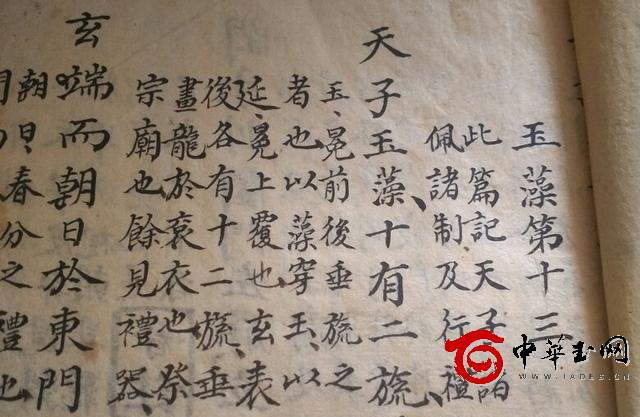 玉藻第十三
此篇記天子諸
佩諸制及行禮
天子玉藻、十有二旒、
玉、冕前後垂旒之
者也以藻穿玉、以
延、冕上覆也、玄表
後各有十二旒、垂
畫龍於袞衣也、祭
宗廟也餘見禮器、
玄端而朝日於東門
朝日、春分之禮也
中華玉网